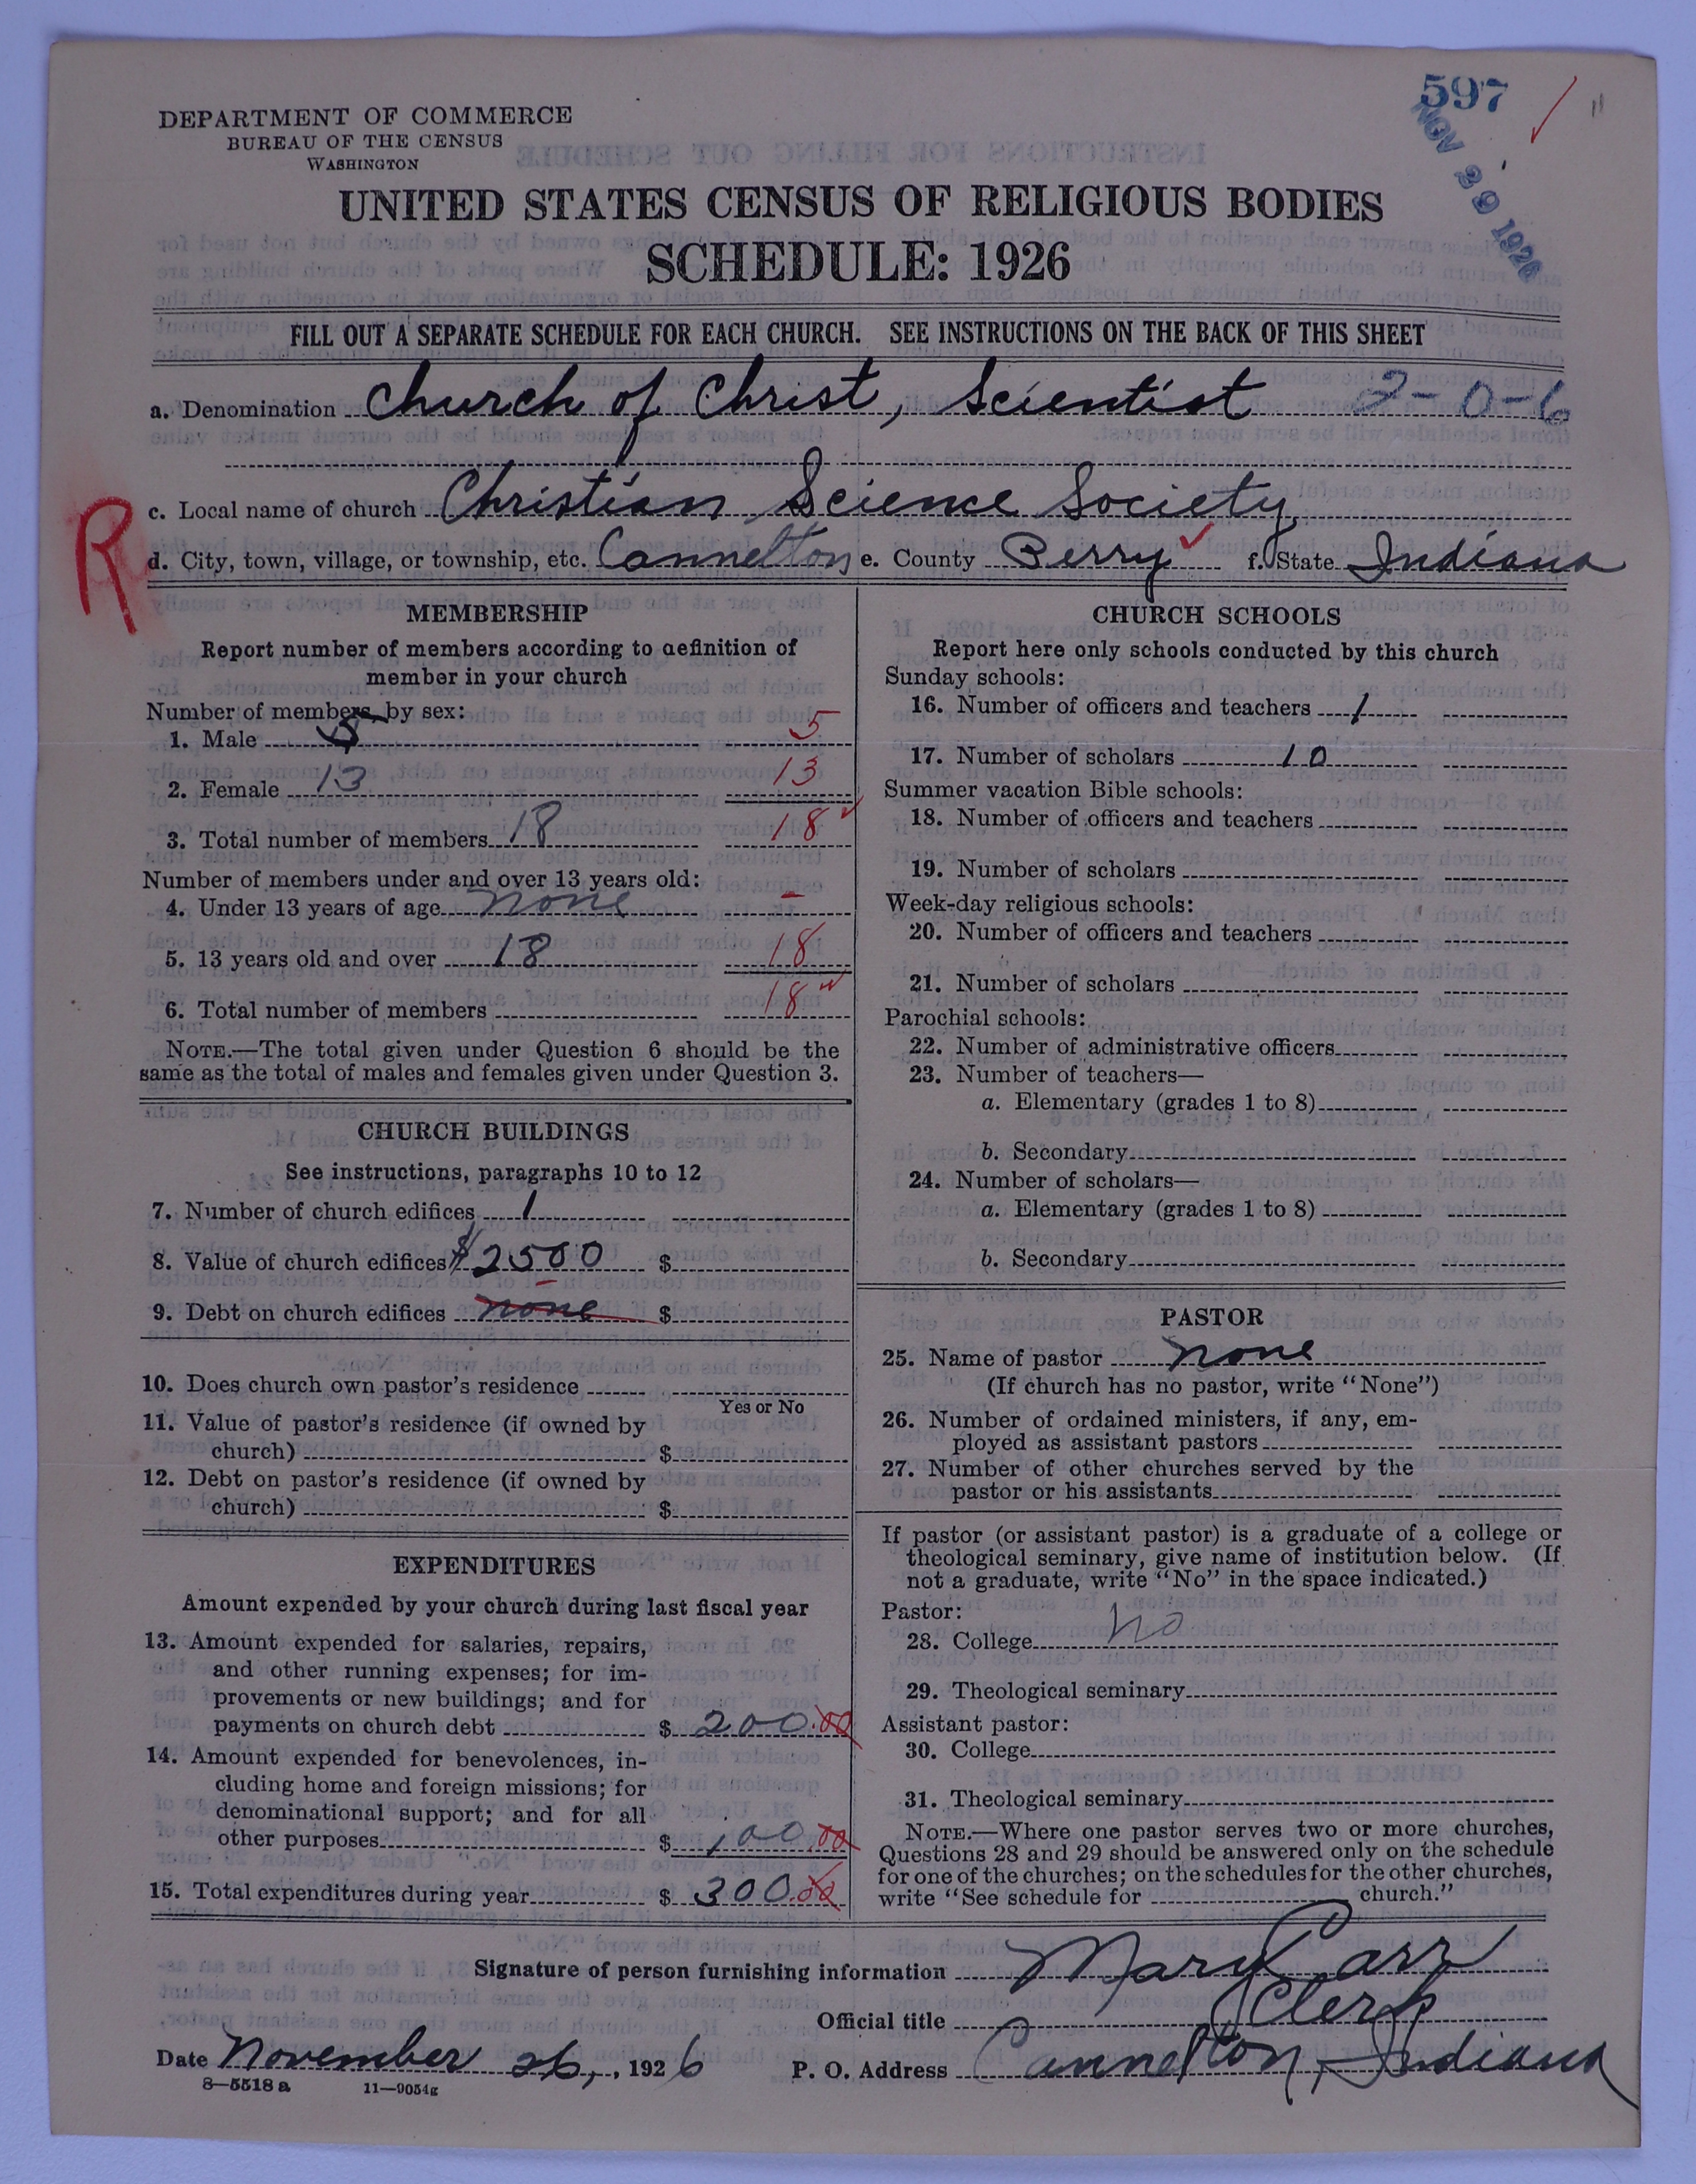 597
NOV 29 1926
DEPARTMENT OF COMMERCE
BUREAU OF THE CENSUS
WASHINGTON
UNITED STATES CENSUS OF RELIGIOUS BODIES
SCHEDULE: 1926
FILL OUT A SEPARATE SCHEDULE FOR EACH CHURCH. SEE INSTRUCTIONS ON THE BACK OF THIS SHEET
a. Denomination Church of Christ, Scientist 2-0-6
R
c. Local name of church Christian Science Society
d. City, town, village, or township, etc. Cannelton e. County Perry f. State Indiana
MEMBERSHIP
Report number of members according to definition of
member in your church
Number of members by sex:
1. Male 5 5
2. Female 13 13
3. Total number of members 18 18
Number of members under and over 13 years old:
4. Under 13 years of age none -
5. 13 years old and over 18 18
6. Total number of members 18
NOTE.—The total given under Question 6 should be the
same as the total of males and females given under Question 3.
CHURCH BUILDINGS
See instructions, paragraphs 10 to 12
7. Number of church edifices 1
8. Value of church edifices $2500 $
9. Debt on church edifices none $
10. Does church own pastor's residence
Yes or No
11. Value of pastor's residence (if owned by
church) $
12. Debt on pastor's residence (if owned by
church) $
EXPENDITURES
Amount expended by your church during last fiscal year
13. Amount expended for salaries, repairs,
and other running expenses; for im-
provements or new buildings; and for
payments on church debt $ 200.00
14. Amount expended for benevolences, in-
cluding home and foreign missions; for
denominational support; and for all
other purposes $ 100.00
15. Total expenditures during year $ 300.00
CHURCH SCHOOLS
Report here only schools conducted by this church
Sunday schools:
16. Number of officers and teachers 1
17. Number of scholars 10
Summer vacation Bible schools:
18. Number of officers and teachers
19. Number of scholars
Week-day religious schools:
20. Number of officers and teachers
21. Number of scholars
Parochial schools:
22. Number of administrative officers
23. Number of teachers—
a. Elementary (grades 1 to 8)
b. Secondary
24. Number of scholars—
a. Elementary (grades 1 to 8)
b. Secondary
PASTOR
25. Name of pastor none
(If church has no pastor, write "None")
26. Number of ordained ministers, if any, em-
ployed as assistant pastors
27. Number of other churches served by the
pastor or his assistants
If pastor (or assistant pastor) is a graduate of a college or
theological seminary, give name of institution below. (If
not a graduate, write "No" in the space indicated.)
Pastor:
28. College No
29. Theological seminary
Assistant pastor:
30. College
31. Theological seminary
NOTE.—Where one pastor serves two or more churches,
Questions 28 and 29 should be answered only on the schedule
for one of the churches; on the schedules for the other churches,
write "See schedule for church."
Signature of person furnishing information Mary Carr
Official title Clerk
Date November 26, 1926 P. O. Address Cannelton, Indiana
8—5518 a 11—9054g